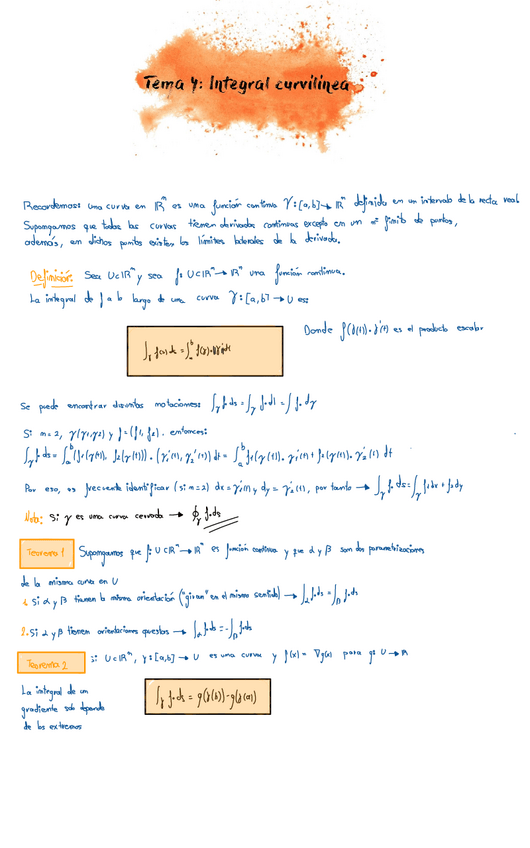 Tema 4: Integral curvilínea
Recordemos: una curva en ℝⁿ es una función continua γ: [a,b] → ℝⁿ definida en un intervalo de la recta real
Supongamos que todas las curvas tienen derivadas continuas excepto en un nº finito de puntos,
además, en dichos puntos existen los límites laterales de la derivada.
Definición: Sea U⊂ℝⁿ y sea f: U⊂ℝⁿ → ℝⁿ una función continua.
La integral de f a lo largo de una curva γ: [a,b] → U es:
Donde f(γ(t))·γ'(t) es el producto escalar
Se puede encontrar distintas notaciones: ∫γ f·ds = ∫γ f·dl = ∫ f·dγ
Si n=2, γ(γ1,γ2) y f=(f1, f2). entonces:
∫γ f·ds = ∫ₐᵇ (f1(γ(t)), f2(γ(t)))·(γ1'(t), γ2'(t)) dt = ∫ₐᵇ f1(γ(t))·γ1'(t) + f2(γ(t))·γ2'(t) dt
Por eso, es frecuente identificar (si n=2) dx = γ1'(t) y dy = γ2'(t), por tanto → ∫γ f·ds = ∫γ f1dx + f2dy
Nota: Si γ es una curva cerrada → ∮γ f·ds
Teorema 1 Supongamos que f: U⊂ℝⁿ → ℝⁿ es función continua y que α y β son dos parametrizaciones
de la misma curva en U
1. Si α y β tienen la misma orientación ("giran" en el mismo sentido) → ∫α f·ds = ∫β f·ds
2. Si α y β tienen orientaciones opuestas → ∫α f·ds = -∫β f·ds
Teorema 2 Si U⊂ℝⁿ, γ: [a,b] → U es una curva y f(x) = ∇g(x) para g: U → ℝ
La integral de un
gradiente solo depende
de los extremos
∫γ f·ds = g(γ(b)) - g(γ(a))